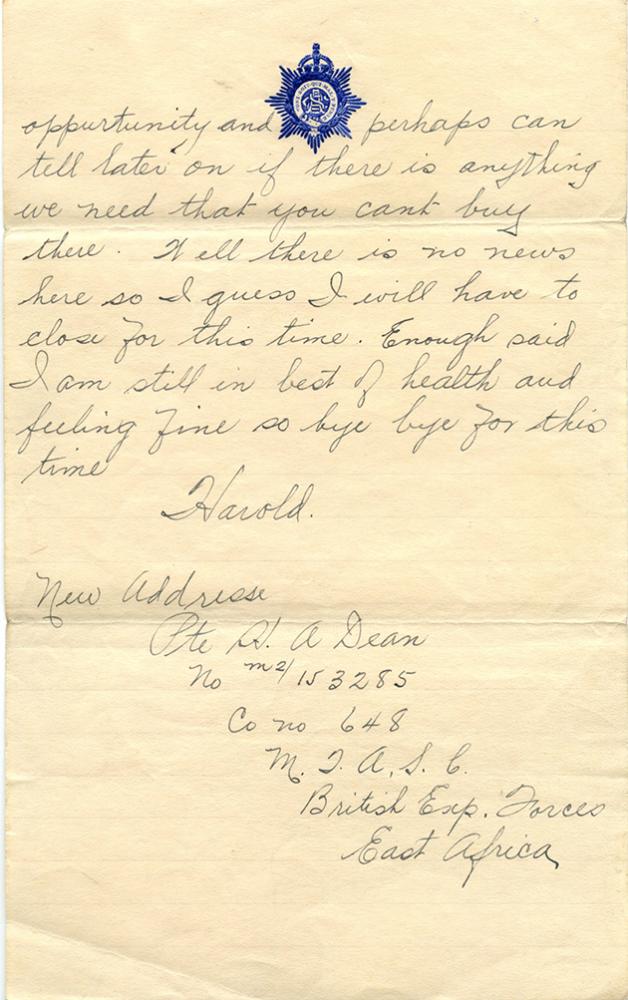 oppurtunity and perhaps can
tell later on if there is anything
we need that you cant buy
there. Well there is no news
here so I guess I will have to
close for this time. Enough said
I am still in best of health and
feeling fine so bye bye for this
time
Harold.
New Addresse
Pte H. A Dean
No m2/153285
Co no 648
M. T. A. S. C.
British Exp. Forces
East Africa